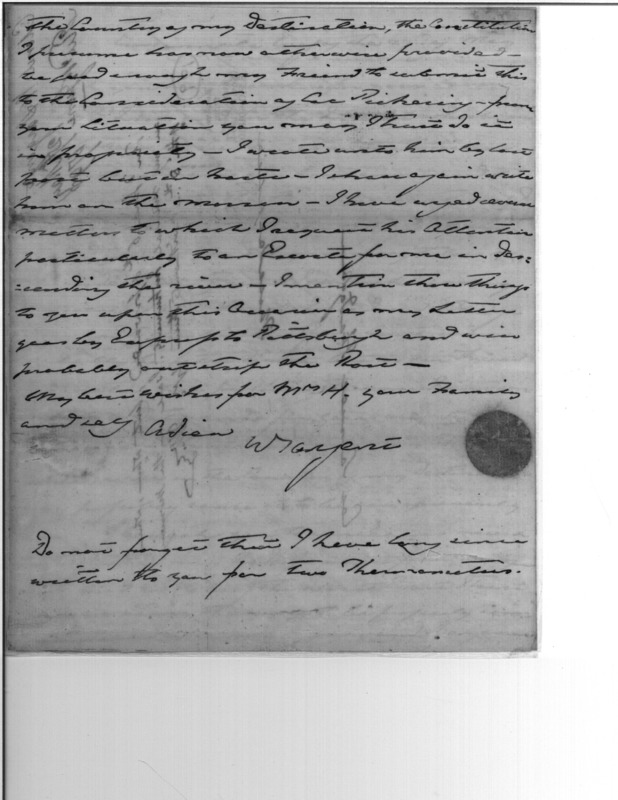 the Country of my Destination, the Constitution
I presume has now otherwise provided —
be good enough my Friend to submit this
to the Consideration of Col Pickering — from
your Situation you may I trust do it
in propriety — I wrote unto him by last
post but in haste — I shall again write
him on the morrow — I have urged
matters to which I request his Attention
particularly to an Escort for me in des:
:cending the river — I mention these things
to you upon this Occasion as my Letter
goes by Express to Pittsburgh and will
probably outstrip the Post —
My best wishes for Mrs H. your Family
and self Adieu W Sargent
Do not forget that I have long since
written to you for two Thermometers.